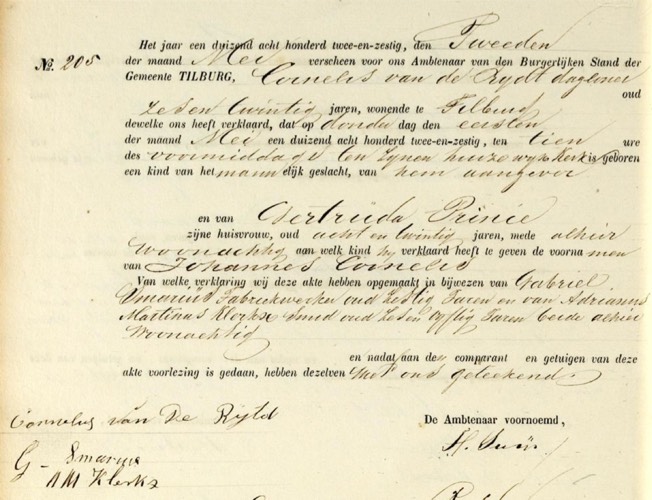 Het jaar een duizend acht honderd twee-en-zestig, den Tweeden
№. 205 der maand Mei verscheen voor ons Ambtenaar van den Burgerlijken Stand der
Gemeente TILBURG, Cornelis van de Rydt daglooner
oud
Zes en twintig jaren, wonende te Tilburg
dewelke ons heeft verklaard, dat op donder dag den eersten
der maand Mei een duizend acht honderd twee-en-zestig, ten tien ure
des voormiddags ten zynen huize wyk Kerk is geboren
een kind van het mann elijk geslacht, van hem aangever
en van Gertruda Prince
zijne huisvrouw, oud acht en twintig jaren, mede alhier
woonachtig aan welk kind hy verklaard heeft te geven de voorna men
van Johannes Cornelis
Van welke verklaring wij deze akte hebben opgemaakt in bijwezen van Gabriel
Smarius Fabriekwerker oud Zestig Jaren en van Adrianus
Martinus Klerkx Smid oud Zes en vyftig Jaren beide alhier
Woonachtig
en nadat aan de comparant en getuigen van deze
akte voorlezing is gedaan, hebben dezelven met ons geteekend.
Cornelus van De Rijtd
De Ambtenaar voornoemd,
G - Smarius
A M Klerks